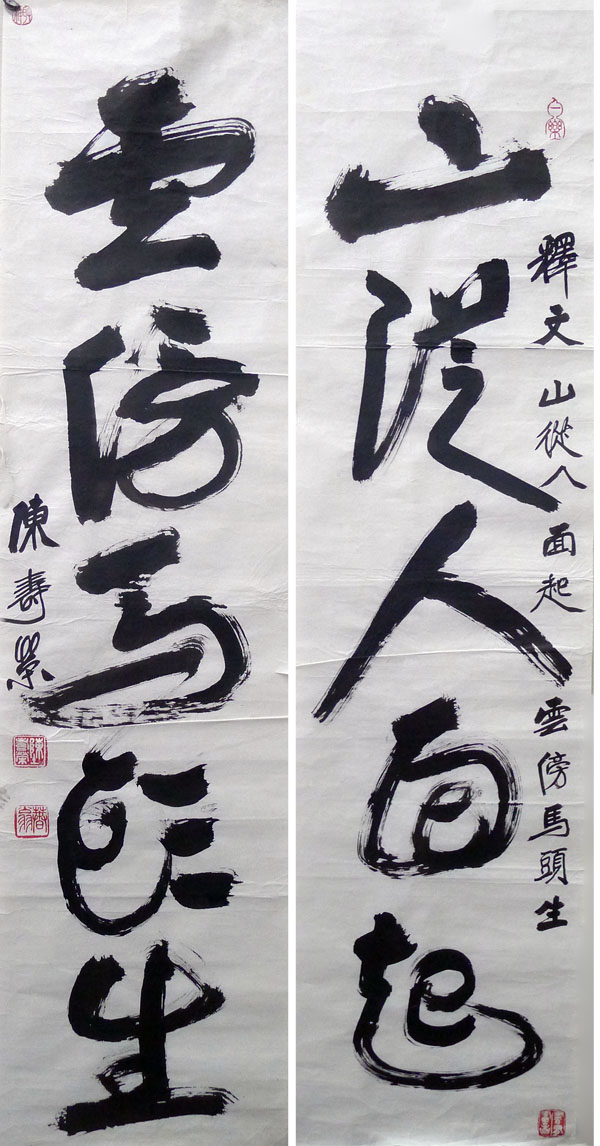 山從人面起
釋文 山從人面起 雲傍馬頭生
雲傍馬頭生
陳壽榮